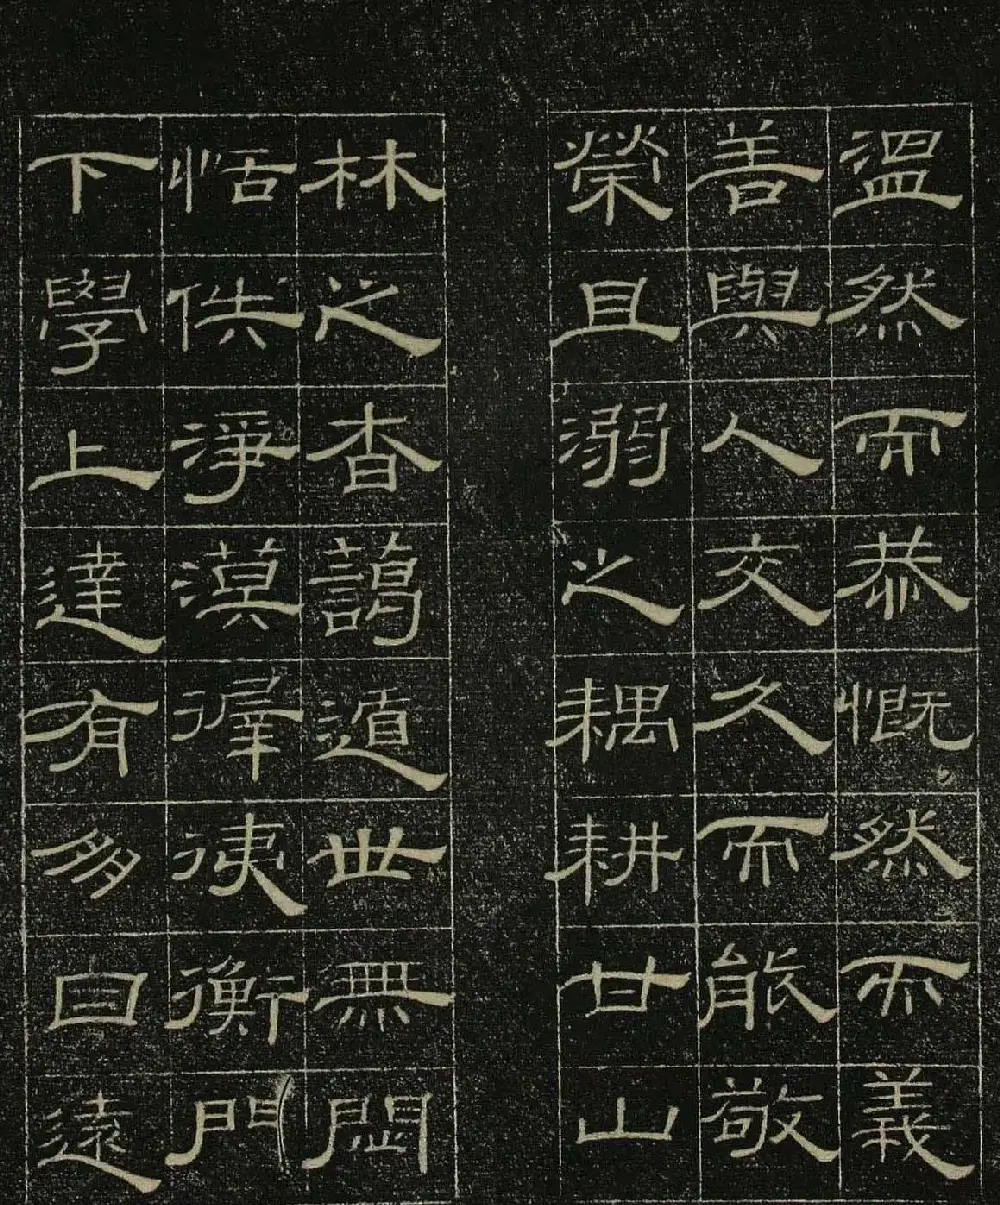 溫然而恭慨然而義
善與人交久而能敬
榮且溺之耦耕甘山
林之杳藹遁世無悶
恬佚淨漠徲𢓡衡門
下學上達有朋自遠